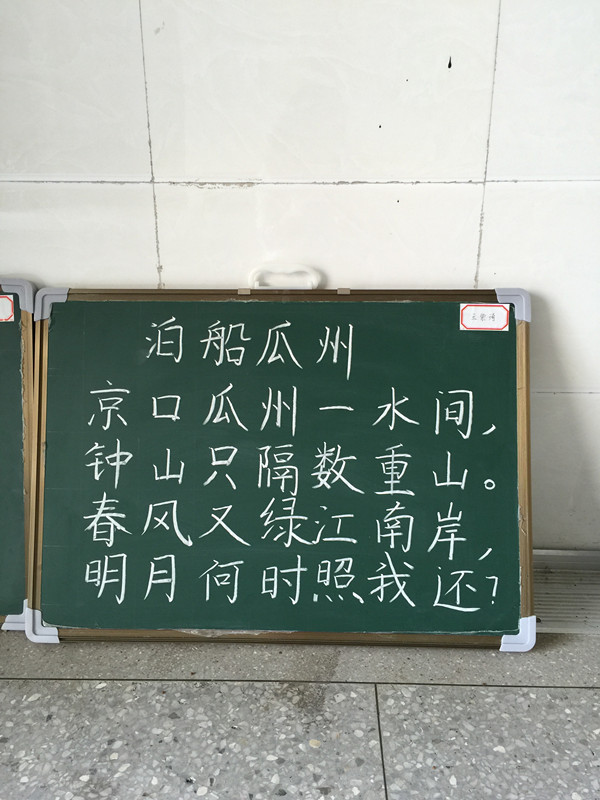 泊船瓜州
京口瓜州一水间,
钟山只隔数重山。
春风又绿江南岸,
明月何时照我还?